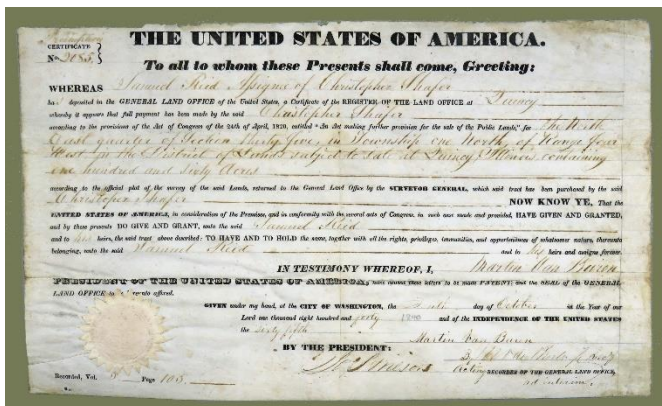 Preemption
CERTIFICATE
No. 2085.
THE UNITED STATES OF AMERICA.
To all to whom these Presents shall come, Greeting:
WHEREAS Samuel Reid Assignee of Christopher Shafer
ha deposited in the GENERAL LAND OFFICE of the United States, a Certificate of the REGISTER OF THE LAND OFFICE at Quincy
whereby it appears that full payment has been made by the said Christopher Shafer
according to the provisions of the Act of Congress of the 24th of April, 1820, entitled "An Act making further provision for the sale of the Public Lands," for the North
East quarter of Section thirty five, in Township one North, of Range four
West, in the District of Lands subject to sale at Quincy Illinois, containing
one hundred and sixty acres
according to the official plat of the survey of the said Lands, returned to the General Land Office by the SURVEYOR GENERAL, which said tract has been purchased by the said
Christopher Shafer NOW KNOW YE, That the
UNITED STATES OF AMERICA, in consideration of the Premises, and in conformity with the several acts of Congress, in such case made and provided, HAVE GIVEN AND GRANTED,
and by these presents DO GIVE AND GRANT, unto the said Samuel Reid
and to his heirs, the said tract above described: TO HAVE AND TO HOLD the same, together with all the rights, privileges, immunities, and appurtenances of whatsoever nature, thereunto
belonging, unto the said Samuel Reid and to his heirs and assigns forever.
IN TESTIMONY WHEREOF, I, Martin Van Buren
PRESIDENT OF THE UNITED STATES OF AMERICA, have caused these letters to be made PATENT, and the SEAL of the GENERAL
LAND OFFICE to be hereunto affixed.
GIVEN under my hand, at the CITY OF WASHINGTON, the day of October in the Year of our
Lord one thousand eight hundred and forty 1840 and of the INDEPENDENCE OF THE UNITED STATES
the sixty fifth
Martin Van Buren
BY THE PRESIDENT:
By
acting RECORDER OF THE GENERAL LAND OFFICE,
ad interim.
Recorded, Vol. Page 103.